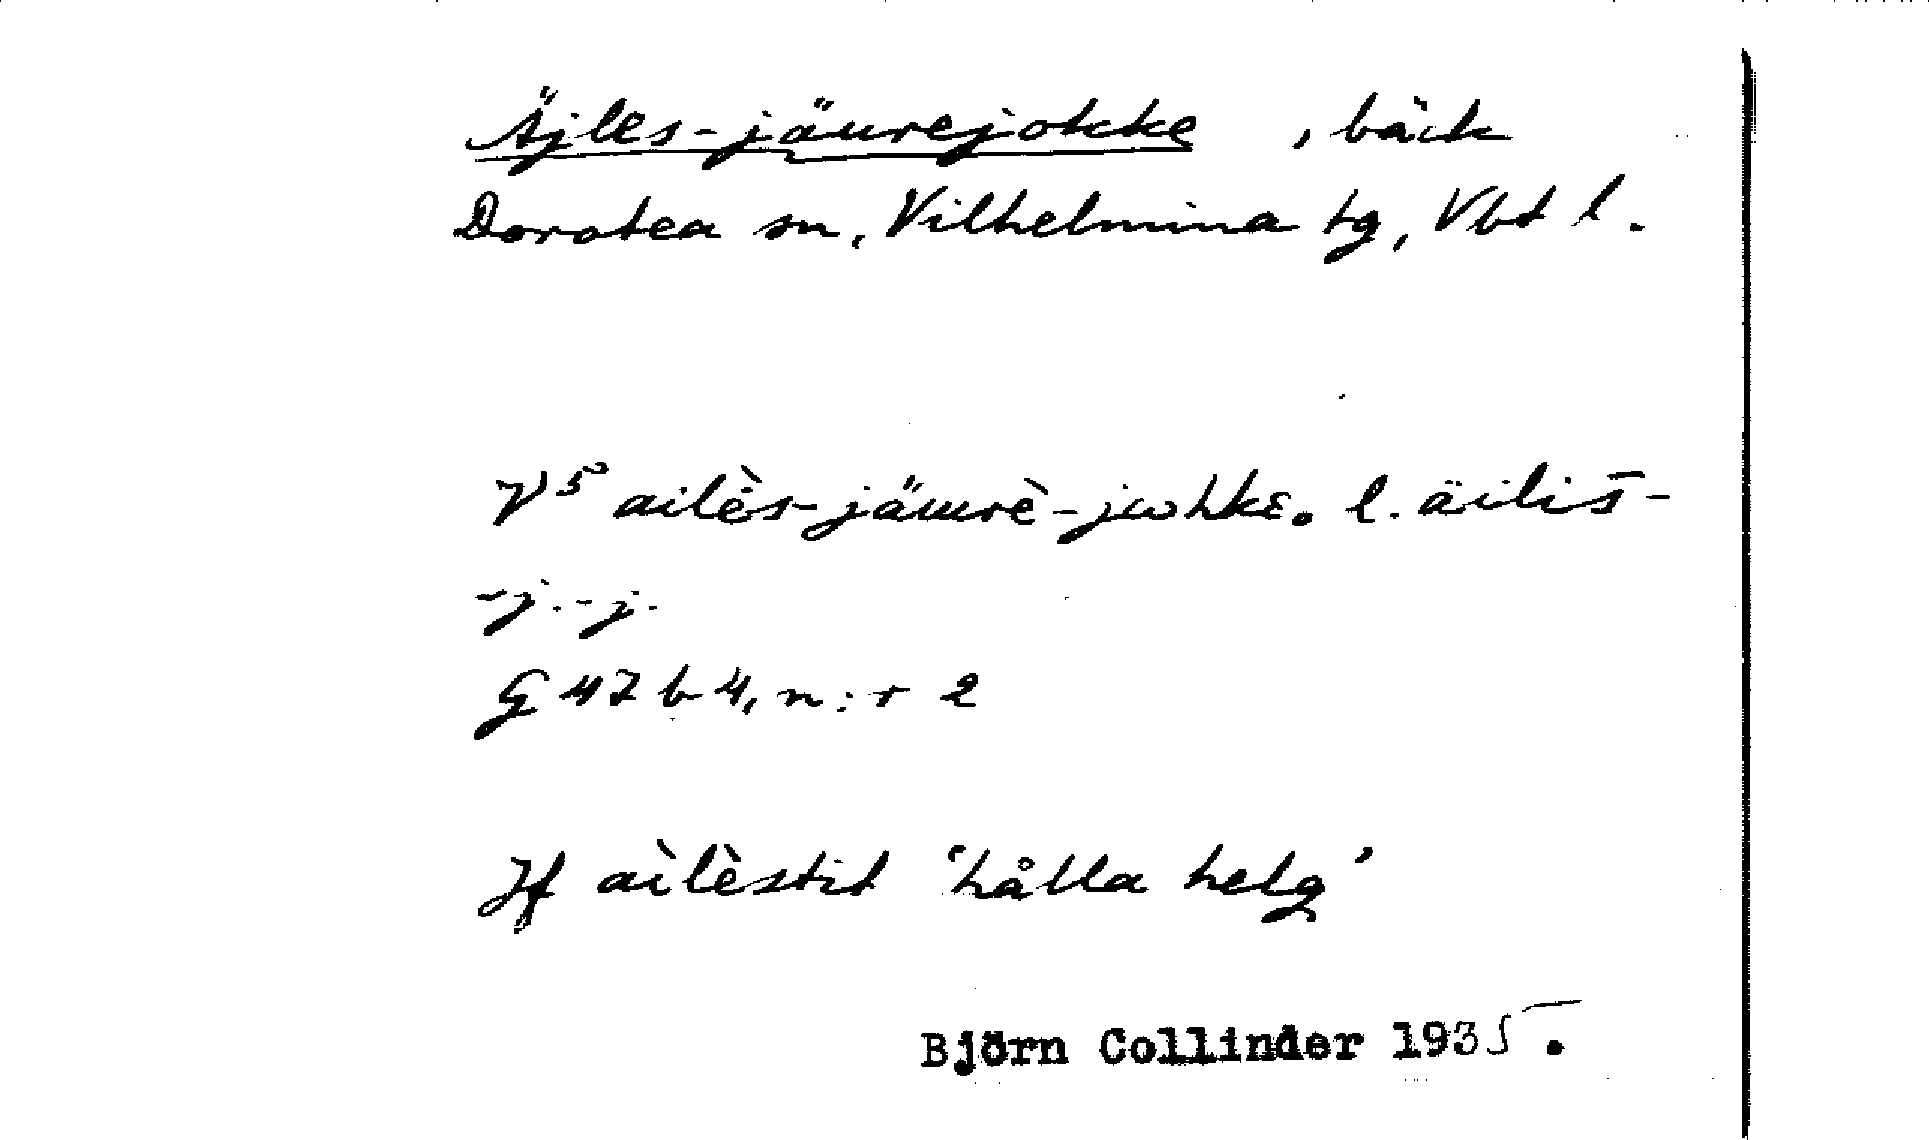 Äjles-jäurejokke, bäck
Dorotea sn, Vilhelmina tg, Vbt l.
V5 ailès-jäuurè-jωhkε. l. äilis-
-j.-j.
G 47 b 4, n:r 2
Jf ailèstit 'hålla helg'
Björn Collinder 1935.